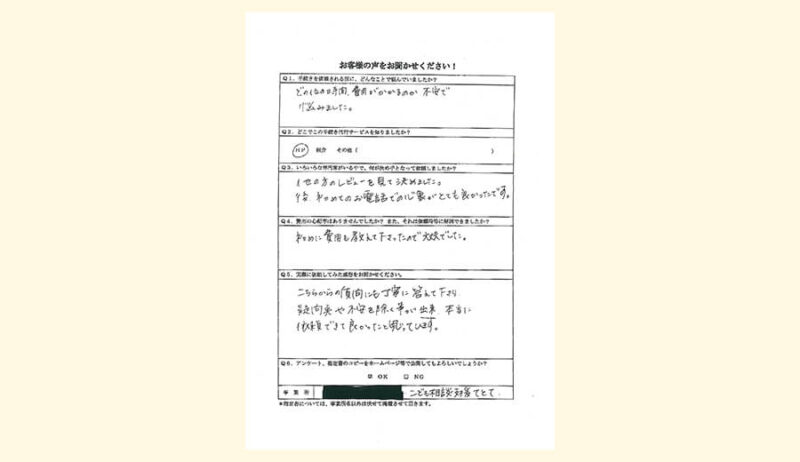 お客様の声をお聞かせください！
Q１、手続きを依頼される前に、どんなことで悩んでいましたか？
どの位の時間、費用がかかるのか 不安で
悩みました。
Q２、どこでこの手続き代行サービスを知りましたか？
HP 紹介 その他（ ）
Q３、いろいろな専門家がいる中で、何が決め手となって依頼しましたか？
他の方のレビューを見て決めました。
後、初めてのお電話での印象がとても良かったです。
Q４、費用の心配等はありませんでしたか？ また、それは依頼時等に解消できましたか？
初めに費用も教えて下さったので大丈夫でした。
Q５、実際に依頼してみた感想をお聞かせください。
こちらからの質問にも丁寧に答えて下さり
疑問点や不安を除く事が出来、本当に
依頼できて良かったと思っています。
Q６、アンケート、指定書のコピーをホームページ等で公開してもよろしいでしょうか？
☑ OK □ NG
事業所 こども相談 てとて
＊指定書については、事業所名以外は伏せて掲載させて頂きます。